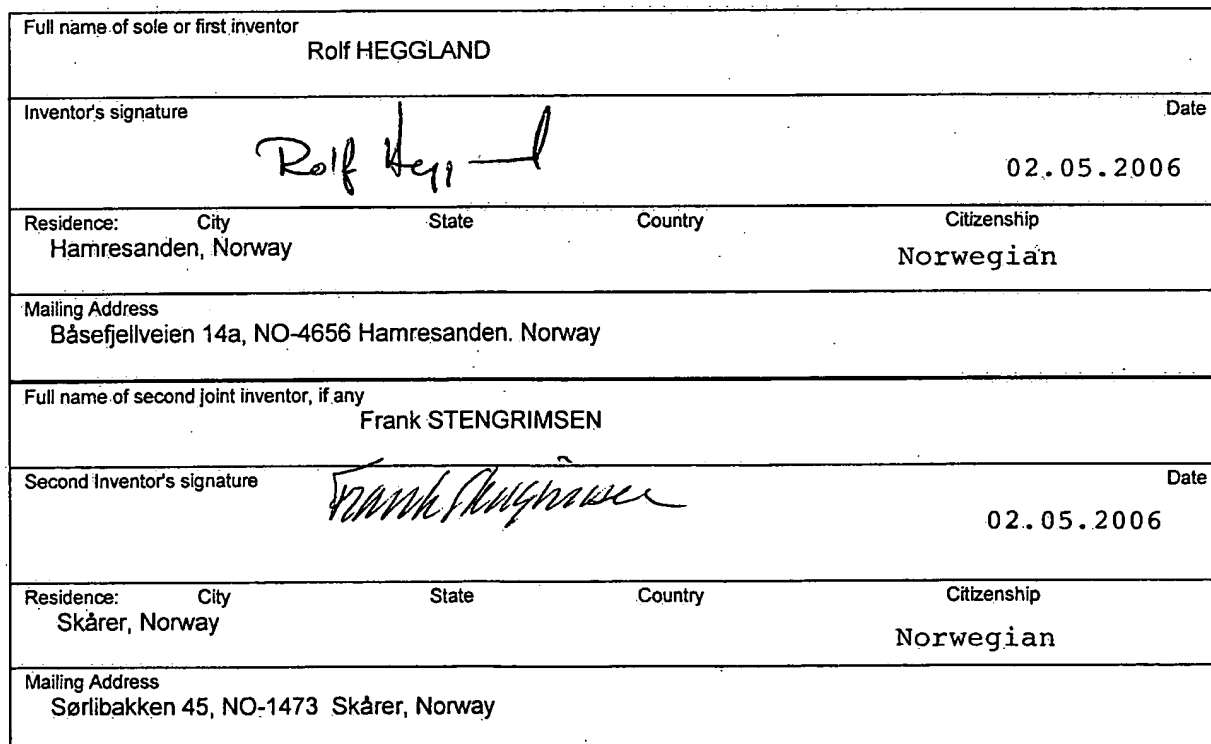 Full name of sole or first inventor
Rolf HEGGLAND
Inventor's signature Date
Rolf Heggland
02.05.2006
Residence: City State Country Citizenship
Hamresanden, Norway Norwegian
Mailing Address
Båsefjellveien 14a, NO-4656 Hamresanden. Norway
Full name of second joint inventor, if any
Frank STENGRIMSEN
Second Inventor's signature Date
Frank Stengrimsen
02.05.2006
Residence: City State Country Citizenship
Skårer, Norway Norwegian
Mailing Address
Sørlibakken 45, NO-1473 Skårer, Norway